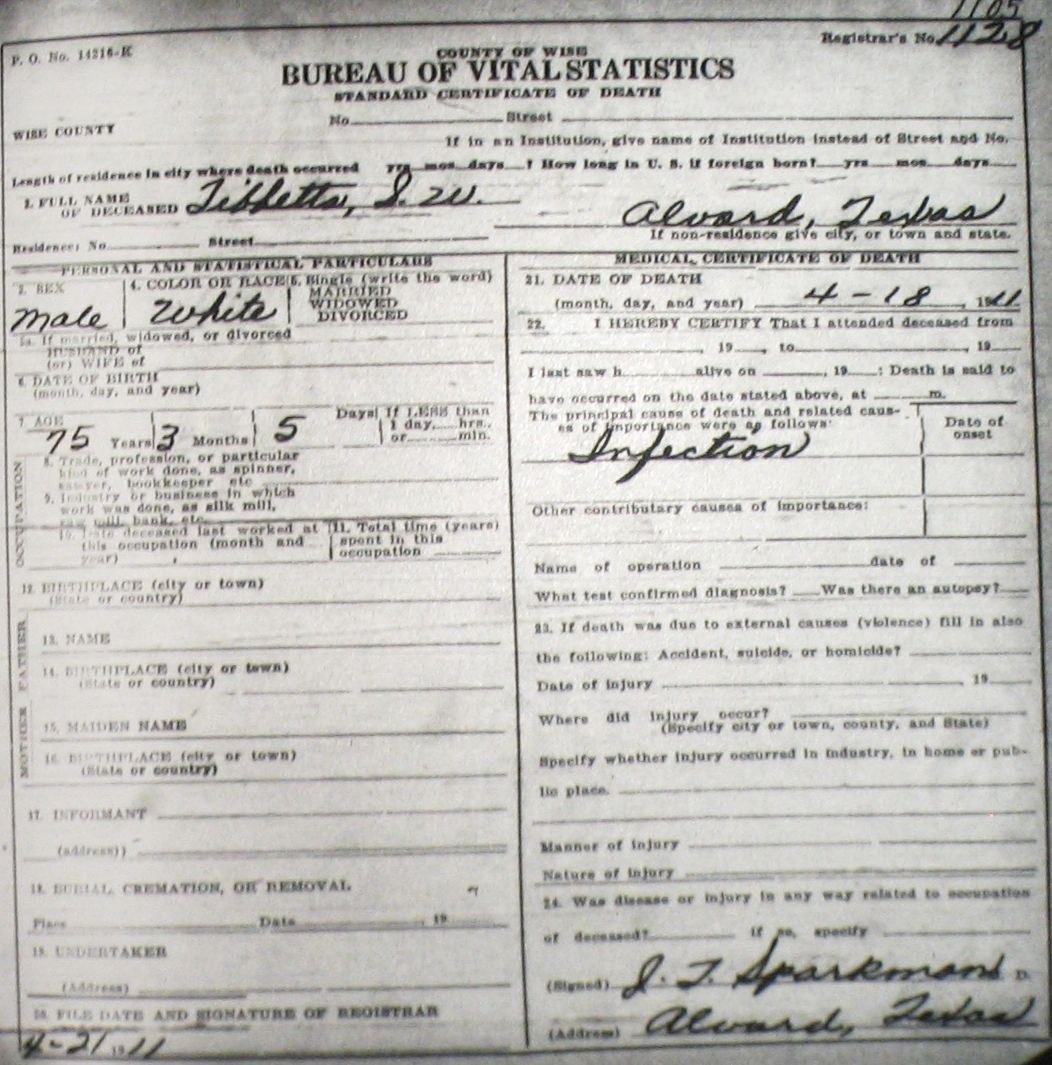 1105
P. O. No. 14216-K
Registrar's No. 1128
COUNTY OF WISE
BUREAU OF VITAL STATISTICS
STANDARD CERTIFICATE OF DEATH
WISE COUNTY
No. Street
If in an Institution, give name of Institution instead of Street and No.
Length of residence in city where death occurred yrs mos days ? How long in U. S. if foreign born? yrs mos days
2. FULL NAME OF DECEASED Tibbetts, J. W.
Alvord, Texas
Residence: No. Street
If non-residence give city, or town and state.
PERSONAL AND STATISTICAL PARTICULARS
3. SEX
Male
4. COLOR OR RACE
White
5. Single (write the word)
MARRIED
WIDOWED
DIVORCED
5a. If married, widowed, or divorced
HUSBAND of
(or) WIFE of
6. DATE OF BIRTH
(month, day, and year)
7. AGE
75 Years 3 Months 5 Days
If LESS than
1 day, hrs.
or min.
OCCUPATION
8. Trade, profession, or particular
kind of work done, as spinner,
sawyer, bookkeeper etc
9. Industry or business in which
work was done, as silk mill,
saw mill, bank, etc.
10. Date deceased last worked at
this occupation (month and
year)
11. Total time (years)
spent in this
occupation
12. BIRTHPLACE (city or town)
(State or country)
FATHER
13. NAME
14. BIRTHPLACE (city or town)
(State or country)
MOTHER
15. MAIDEN NAME
16. BIRTHPLACE (city or town)
(State or country)
17. INFORMANT
(address))
18. BURIAL, CREMATION, OR REMOVAL
Place Date , 19
19. UNDERTAKER
(Address)
20. FILE DATE AND SIGNATURE OF REGISTRAR
4-21 1911
MEDICAL CERTIFICATE OF DEATH
21. DATE OF DEATH
(month, day, and year) 4-18 , 1911
22. I HEREBY CERTIFY That I attended deceased from
, 19 , to , 19
I last saw h alive on , 19 : Death is said to
have occurred on the date stated above, at m.
The principal cause of death and related caus-
es of importance were as follows:
Date of
onset
Infection
Other contributary causes of importance:
Name of operation date of
What test confirmed diagnosis? Was there an autopsy?
23. If death was due to external causes (violence) fill in also
the following: Accident, suicide, or homicide?
Date of injury , 19
Where did injury occur?
(Specify city or town, county, and State)
Specify whether injury occurred in industry, in home or pub-
lic place.
Manner of injury
Nature of injury
24. Was disease or injury in any way related to occupation
of deceased? If so, specify
(Signed) J. T. Sparkman D.
(Address) Alvord, Texas